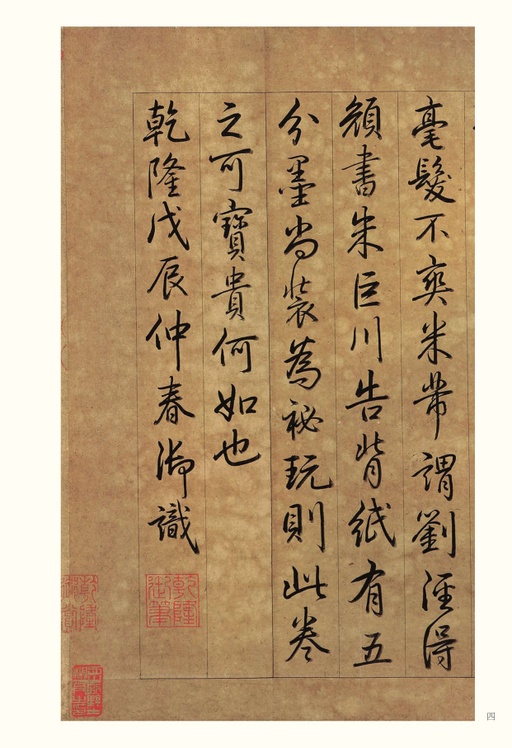 毫髮不爽米芾謂劉涇得
顏書朱巨川告背紙有五
分墨尚裝為祕玩則此卷
之可寶貴何如也
乾隆戊辰仲春御識
乾隆
御筆
四